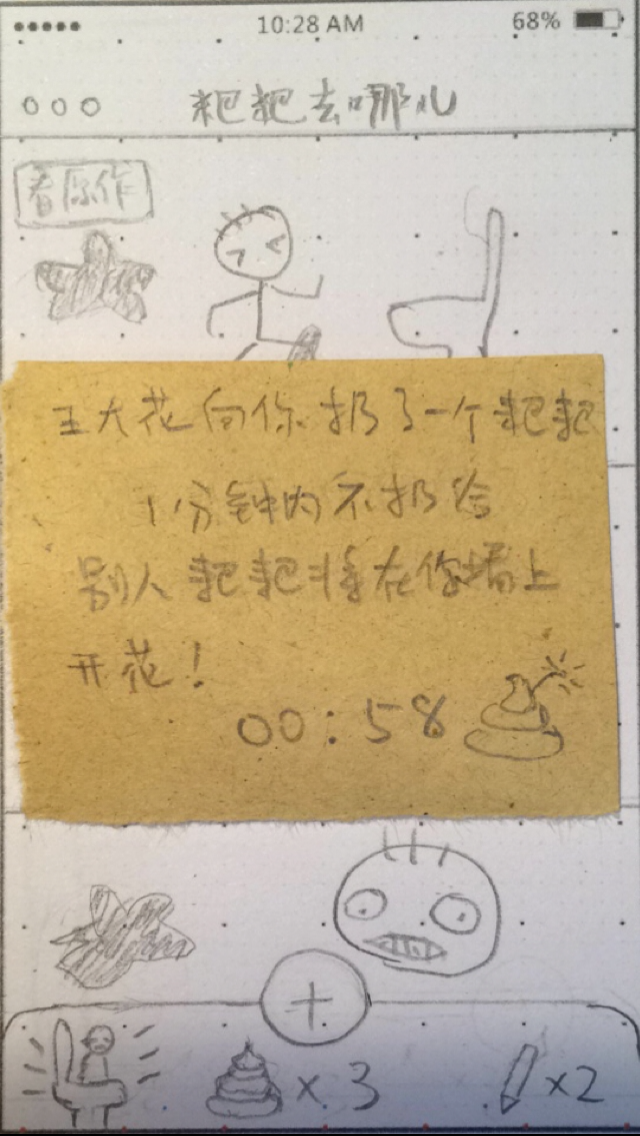 10:28 AM 68%
粑粑去哪儿
看原作
王大花向你扔了一个粑粑
1分钟内不扔给
别人粑粑将在你墙上
开花！
00:58
+
x3
x2